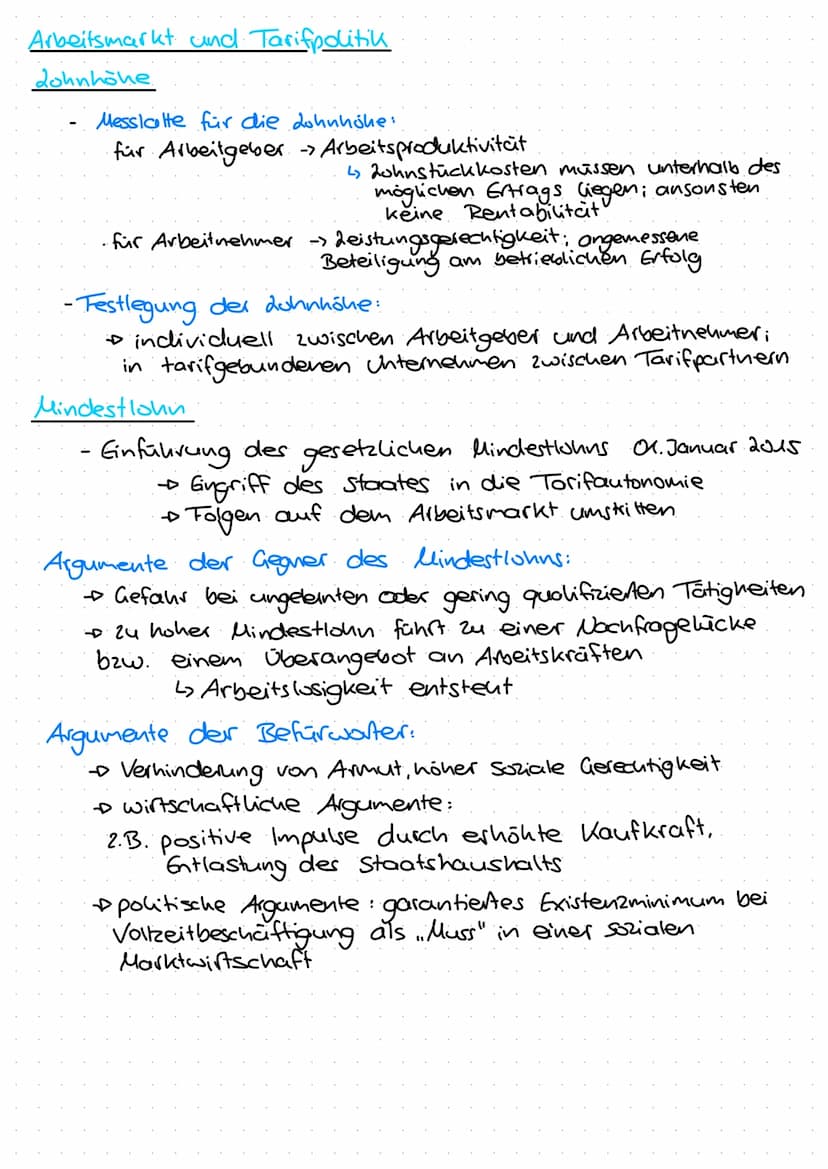 Arbeitsmarkt und Tarifpolitik
Lohnhöhe
- Messlatte für die Lohnhöhe:
für Arbeitgeber → Arbeitsproduktivität
↳ Lohnstückkosten müssen unterhalb des
möglichen Ertrags liegen; ansonsten
keine Rentabilität
· für Arbeitnehmer → Leistungsgerechtigkeit; angemessene
Beteiligung am betrieblichen Erfolg
- Festlegung der Lohnhöhe:
→ individuell zwischen Arbeitgeber und Arbeitnehmer;
in tarifgebundenen Unternehmen zwischen Tarifpartnern
Mindestlohn
- Einführung des gesetzlichen Mindestlohns 01. Januar 2015
→ Eingriff des Staates in die Tarifautonomie
→ Folgen auf dem Arbeitsmarkt umstritten
Argumente der Gegner des Mindestlohns:
→ Gefahr bei ungelernten oder gering qualifizierten Tätigkeiten
→ zu hoher Mindestlohn führt zu einer Nachfragelücke
bzw. einem Überangebot an Arbeitskräften
↳ Arbeitslosigkeit entsteht
Argumente der Befürworter:
→ Verhinderung von Armut, höher soziale Gerechtigkeit
→ wirtschaftliche Argumente:
z.B. positive Impulse durch erhöhte Kaufkraft,
Entlastung des Staatshaushalts
→ politische Argumente: garantiertes Existenzminimum bei
Vollzeitbeschäftigung als „Muss" in einer sozialen
Marktwirtschaft